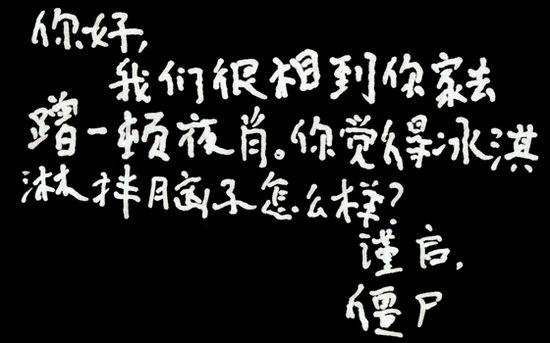 你好,
我们很相到你家去
蹭一顿夜肖。你觉得冰淇
淋拌脑子怎么样?
谨启,
僵尸